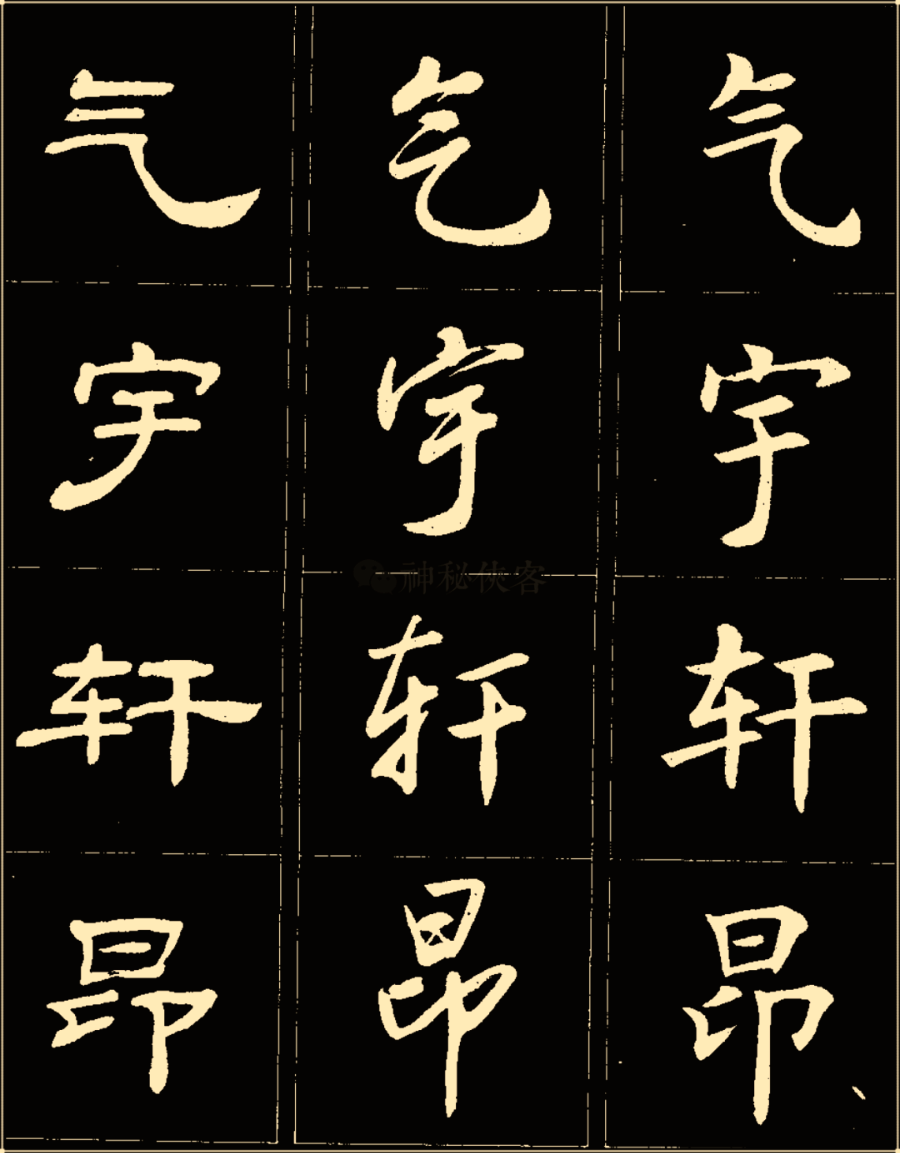 气宇轩昂
气宇轩昂
气宇轩昂
神秘侠客